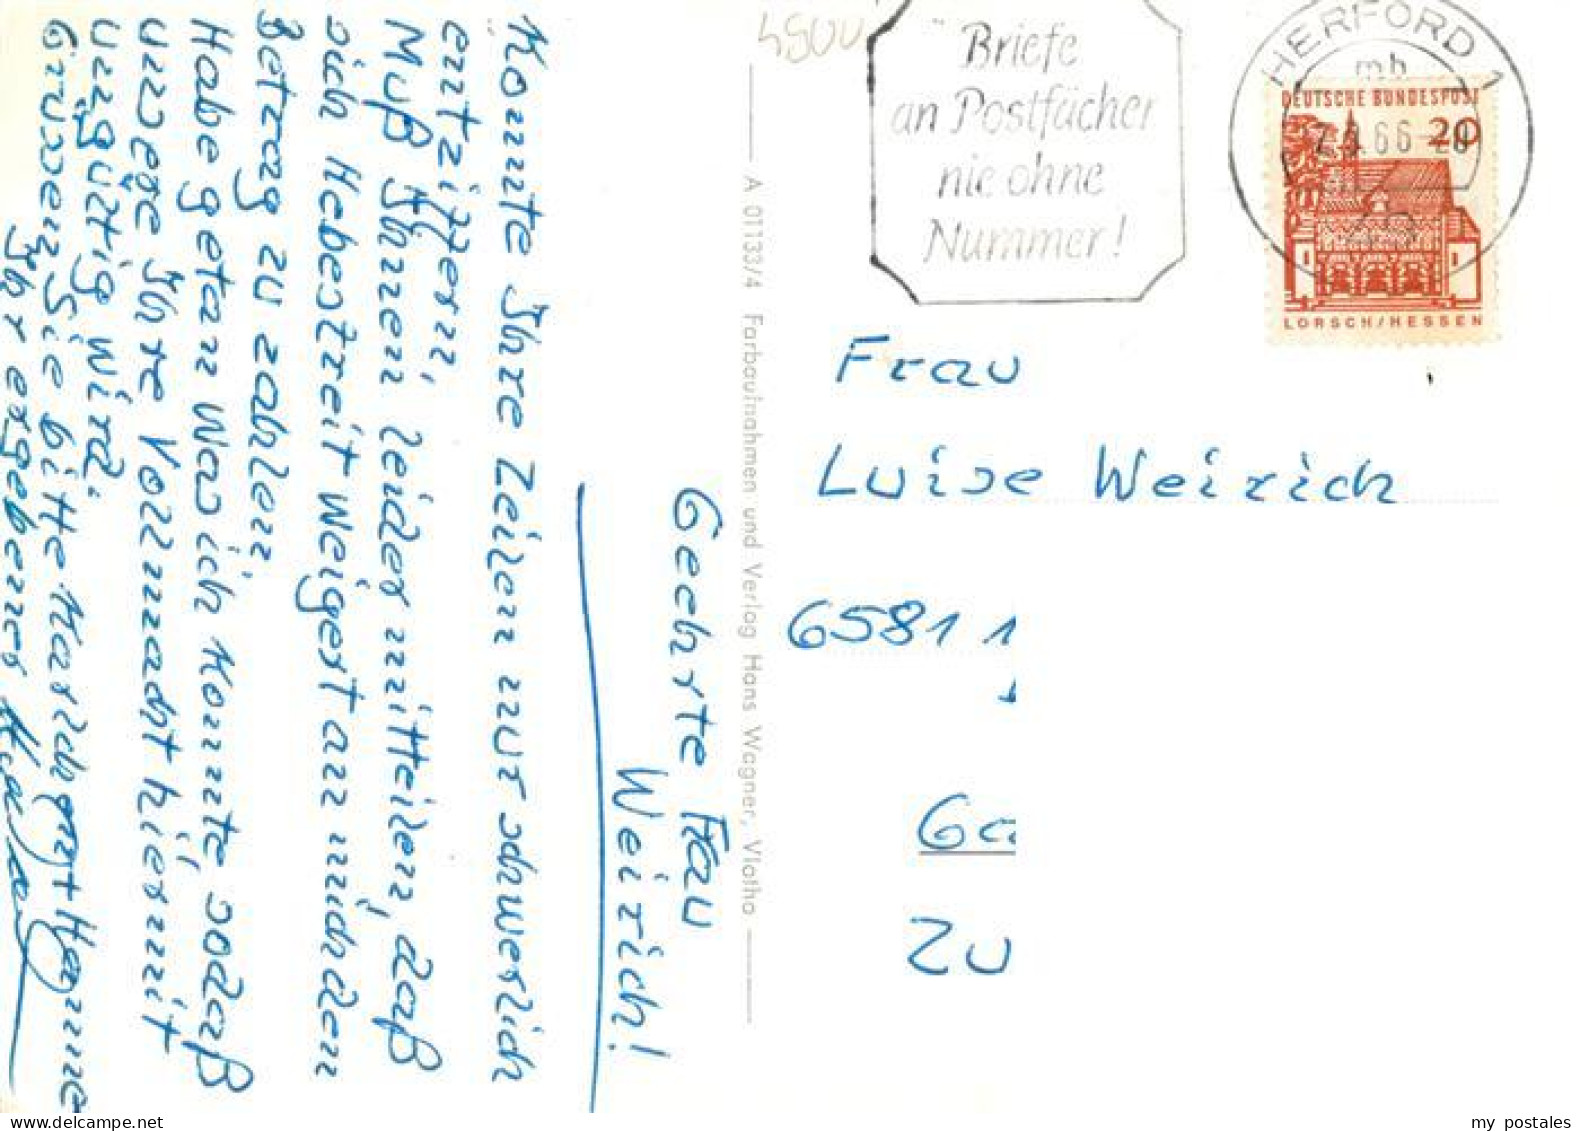 4500
Briefe
an Postfächer
nie ohne
Nummer!
HERFORD 1
mb
66
DEUTSCHE BUNDESPOST
20
LORSCH/HESSEN
Geehrte Frau
Weirich!
Konnte Ihre Zeilen nur schwerlich
entziffern,
Muß Ihnen leider mitteilen, daß
sich Hebestreit weigert an mich den
Betrag zu zahlen,
Habe getan was ich konnte, sodaß
unwege Ihre Vollmacht hiermit
ungültig wird.
Grüssen Sie bitte
Ihr ergebener
A 01133/4 Farbaufnahmen und Verlag Hans Wagner, Vlotho
Frau
Luise Weirich
6581 1
Zu
my postales